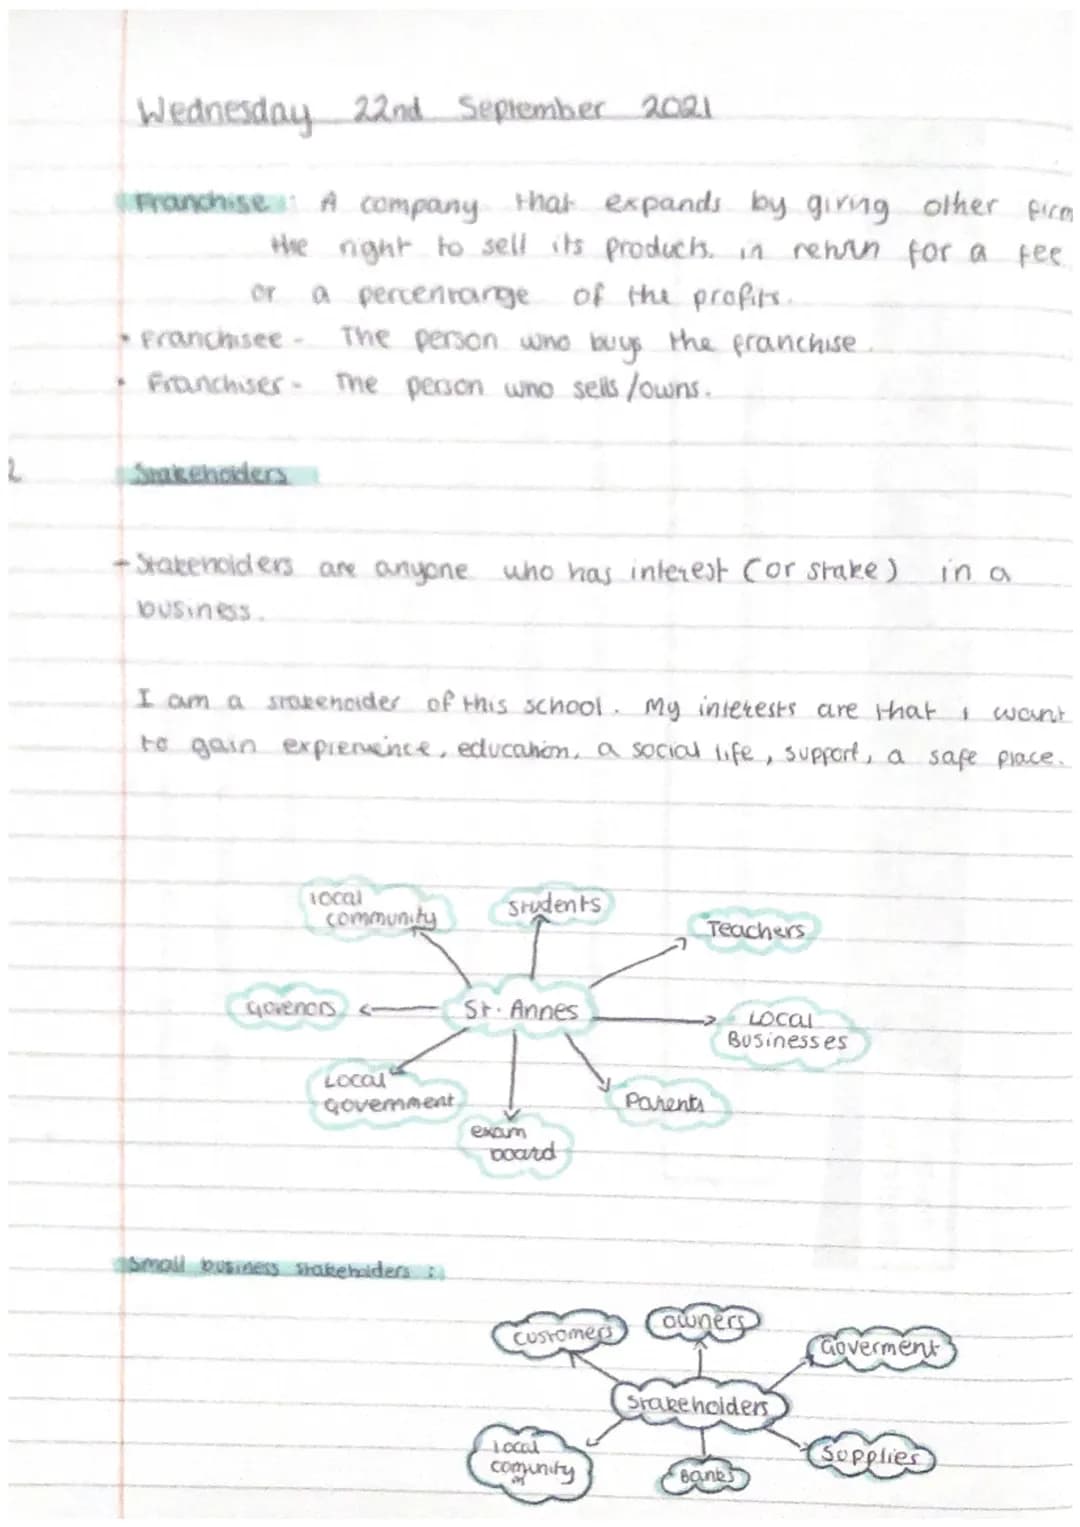 Wednesday 22nd September 2021
Franchise : A company that expands by giving other firm
the right to sell its products. in return for a fee
or a percentange of the profits.
• Franchisee - The person who buys the franchise.
• Franchiser - The person who sells/owns.
2
Stakeholders
- Stakeholders are anyone who has interest (or stake) in a
business.
I am a stakeholder of this school. My interests are that i want
to gain exprenience, education, a social life, support, a safe place.
local
community
Students
Teachers
Govenors
St. Annes
Local
Businesses
Local
government
Parents
exam
board
Small business stakeholders :
customers
owners
Goverment
Stakeholders
local
comunity
m
Banks
Supplies